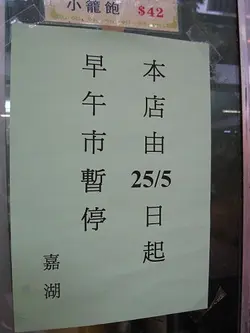 小籠飽 $42
本店由25/5日起
早午市暫停
嘉湖